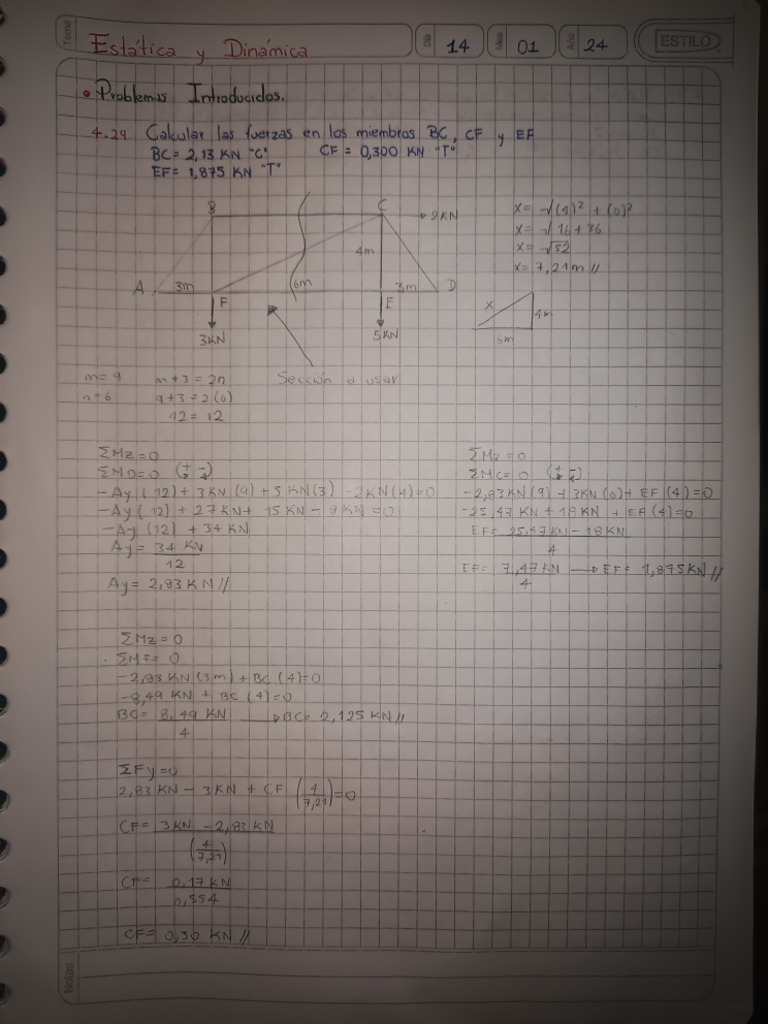 Tema
Estática y Dinámica
Día 14 Mes 01 Año 24
ESTILO
• Problemas Introducidos.
4.29 Calcular las fuerzas en los miembros BC, CF y EF
BC= 2,13 KN "C" CF = 0,300 KN "T"
EF= 1,875 KN "T"
B C 2KN
4m
A 3m F 6m E 3m D
3KN 5KN
Sección a usar
x= √(4)² + (6)²
x= √16+36
x= √52
x= 7,21m //
x 4m
6m
m=9 m+3=2n
n=6 9+3=2(6)
12=12
ΣMz=0
ΣMD=0 (+ -)
-Ay(12)+3KN(9)+5KN(3)-2KN(4)=0
-Ay(12)+27KN+15KN-8KN=0
-Ay(12)+34KN
Ay= 34 KN
12
Ay= 2,83KN//
ΣMz=0
ΣMC=0 (+ -)
-2,83KN(9)+3KN(6)+EF(4)=0
-25,47KN+18KN+EF(4)=0
EF= 25,47KN-18KN
4
EF= 7,47KN → EF= 1,875KN//
4
ΣMz=0
ΣMF=0
-2,83KN(3m)+BC(4)=0
-8,49KN+BC(4)=0
BC= 8,49 KN → BC= 2,125 KN//
4
ΣFy=0
2,83KN-3KN+CF (4/7,21)=0
CF= 3KN-2,83KN
(4/7,21)
CF= 0,17KN
0,554
CF= 0,30 KN //
Notas